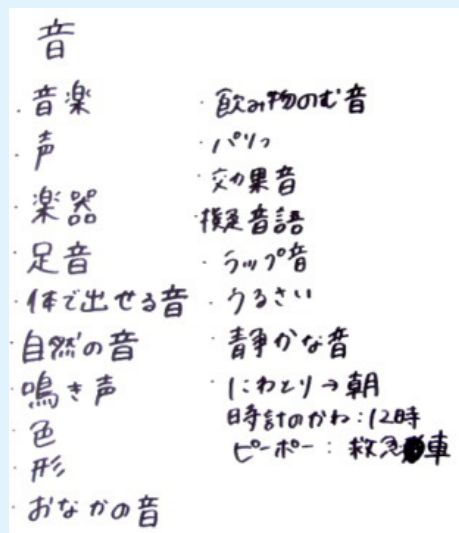 音
・音楽
・声
・楽器
・足音
・体で出せる音
・自然の音
・鳴き声
・色
・形
・おなかの音
・飲み物のむ音
・パリッ
・効果音
・擬音語
・ラップ音
・うるさい
・静かな音
・にわとり→朝
時計のかね:12時
ピーポー:救急車